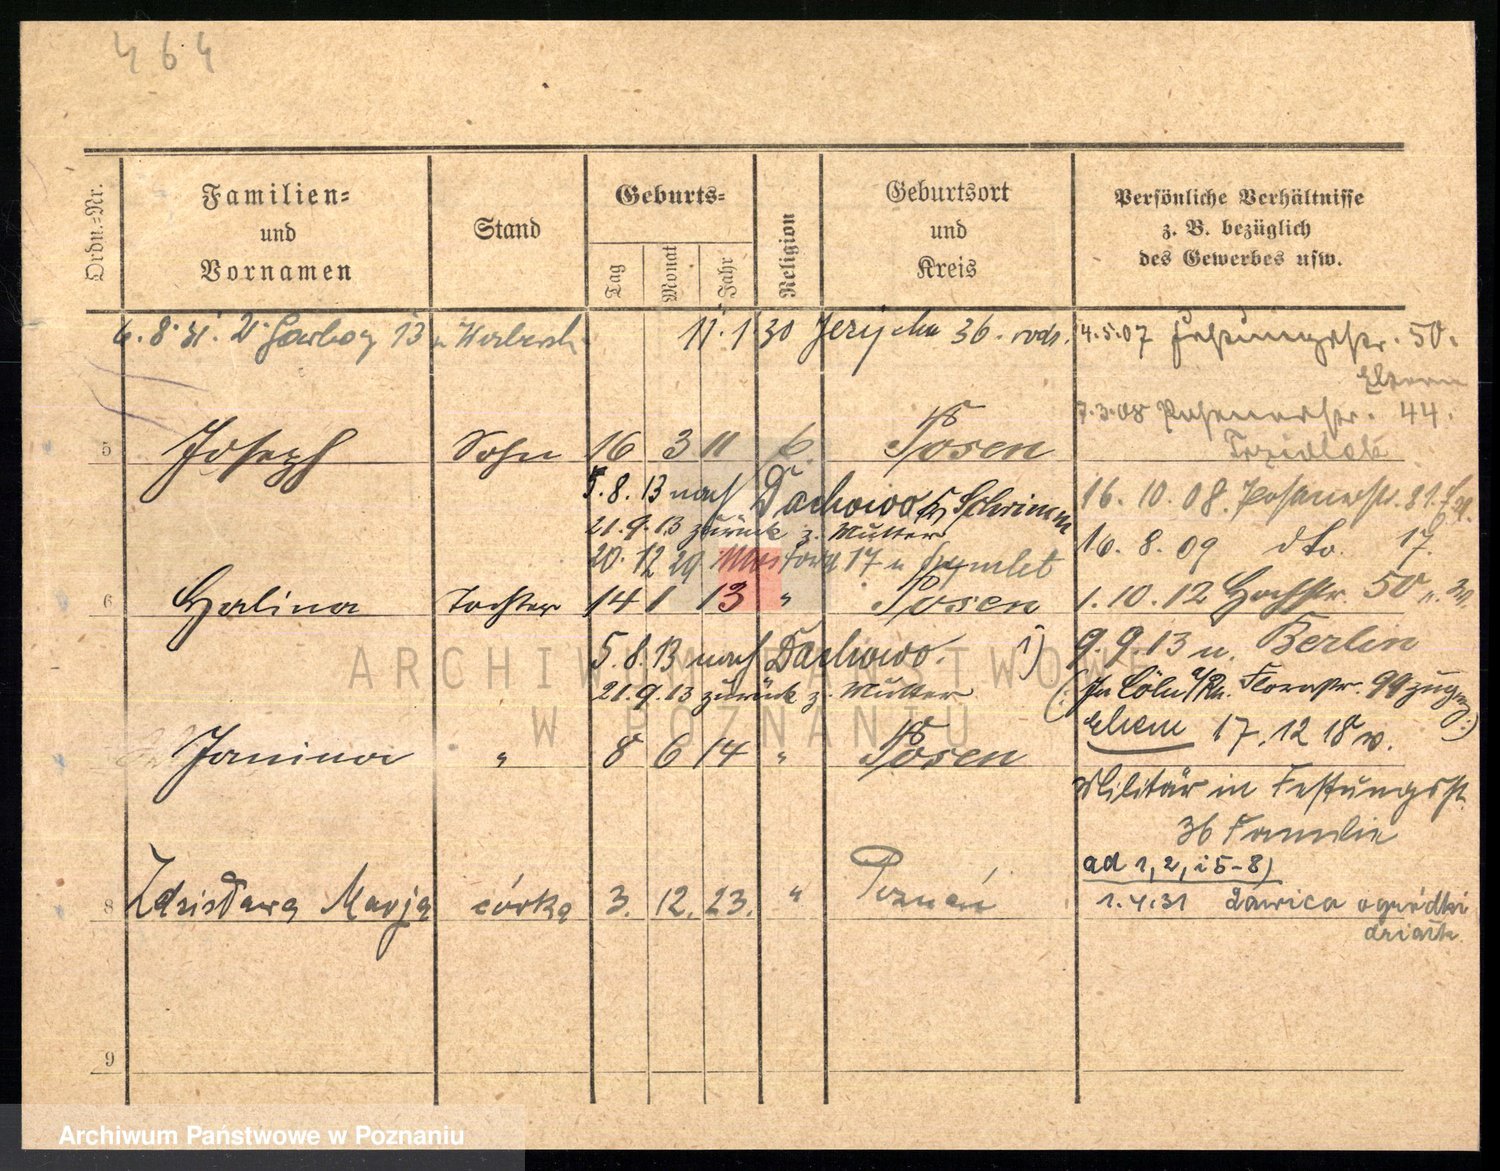 464
Ordn.-Nr.
Familien-
und
Vornamen
Stand
Geburts-
Tag
Monat
Jahr
Religion
Geburtsort
und
Kreis
Persönliche Verhältnisse
z. B. bezüglich
des Gewerbes usw.
6.8.31. 13
11.1 30 36. rodz.
4.5.07 Festungsstr. 50.
Eltern
7.3.08 Posenerstr. 44.
5 Joseph Sohn 16 3 11 6 Posen
5.8.13 nach Dachowo Kr Schrimm
21.9.13 zurück z. Mutter
20.12 29 17 u
16.10.08. Posenerstr.
16.8.09 dto. 17.
6 Halina Tochter 14 1 13 " Posen
1.10.12 Hochstr. 50
5.8.13 nach Dachowo.
21.9.13 zurück z. Mutter
1) 9.9.13 n. Berlin
(In Cöln a/Rh. Florastr. 99 zugez.)
Ehem 17.12 18 v.
Janina " 8 6 14 " Posen
Militär in Festungsst.
36 Familie
ad 1, 2, i 5-8)
8 Zdzisława Marja córka 3. 12. 23. " Poznań
1.4.31 Ławica ogródki
działk.
9
ARCHIWUM PAŃSTWOWE
W POZNANIU
Archiwum Państwowe w Poznaniu